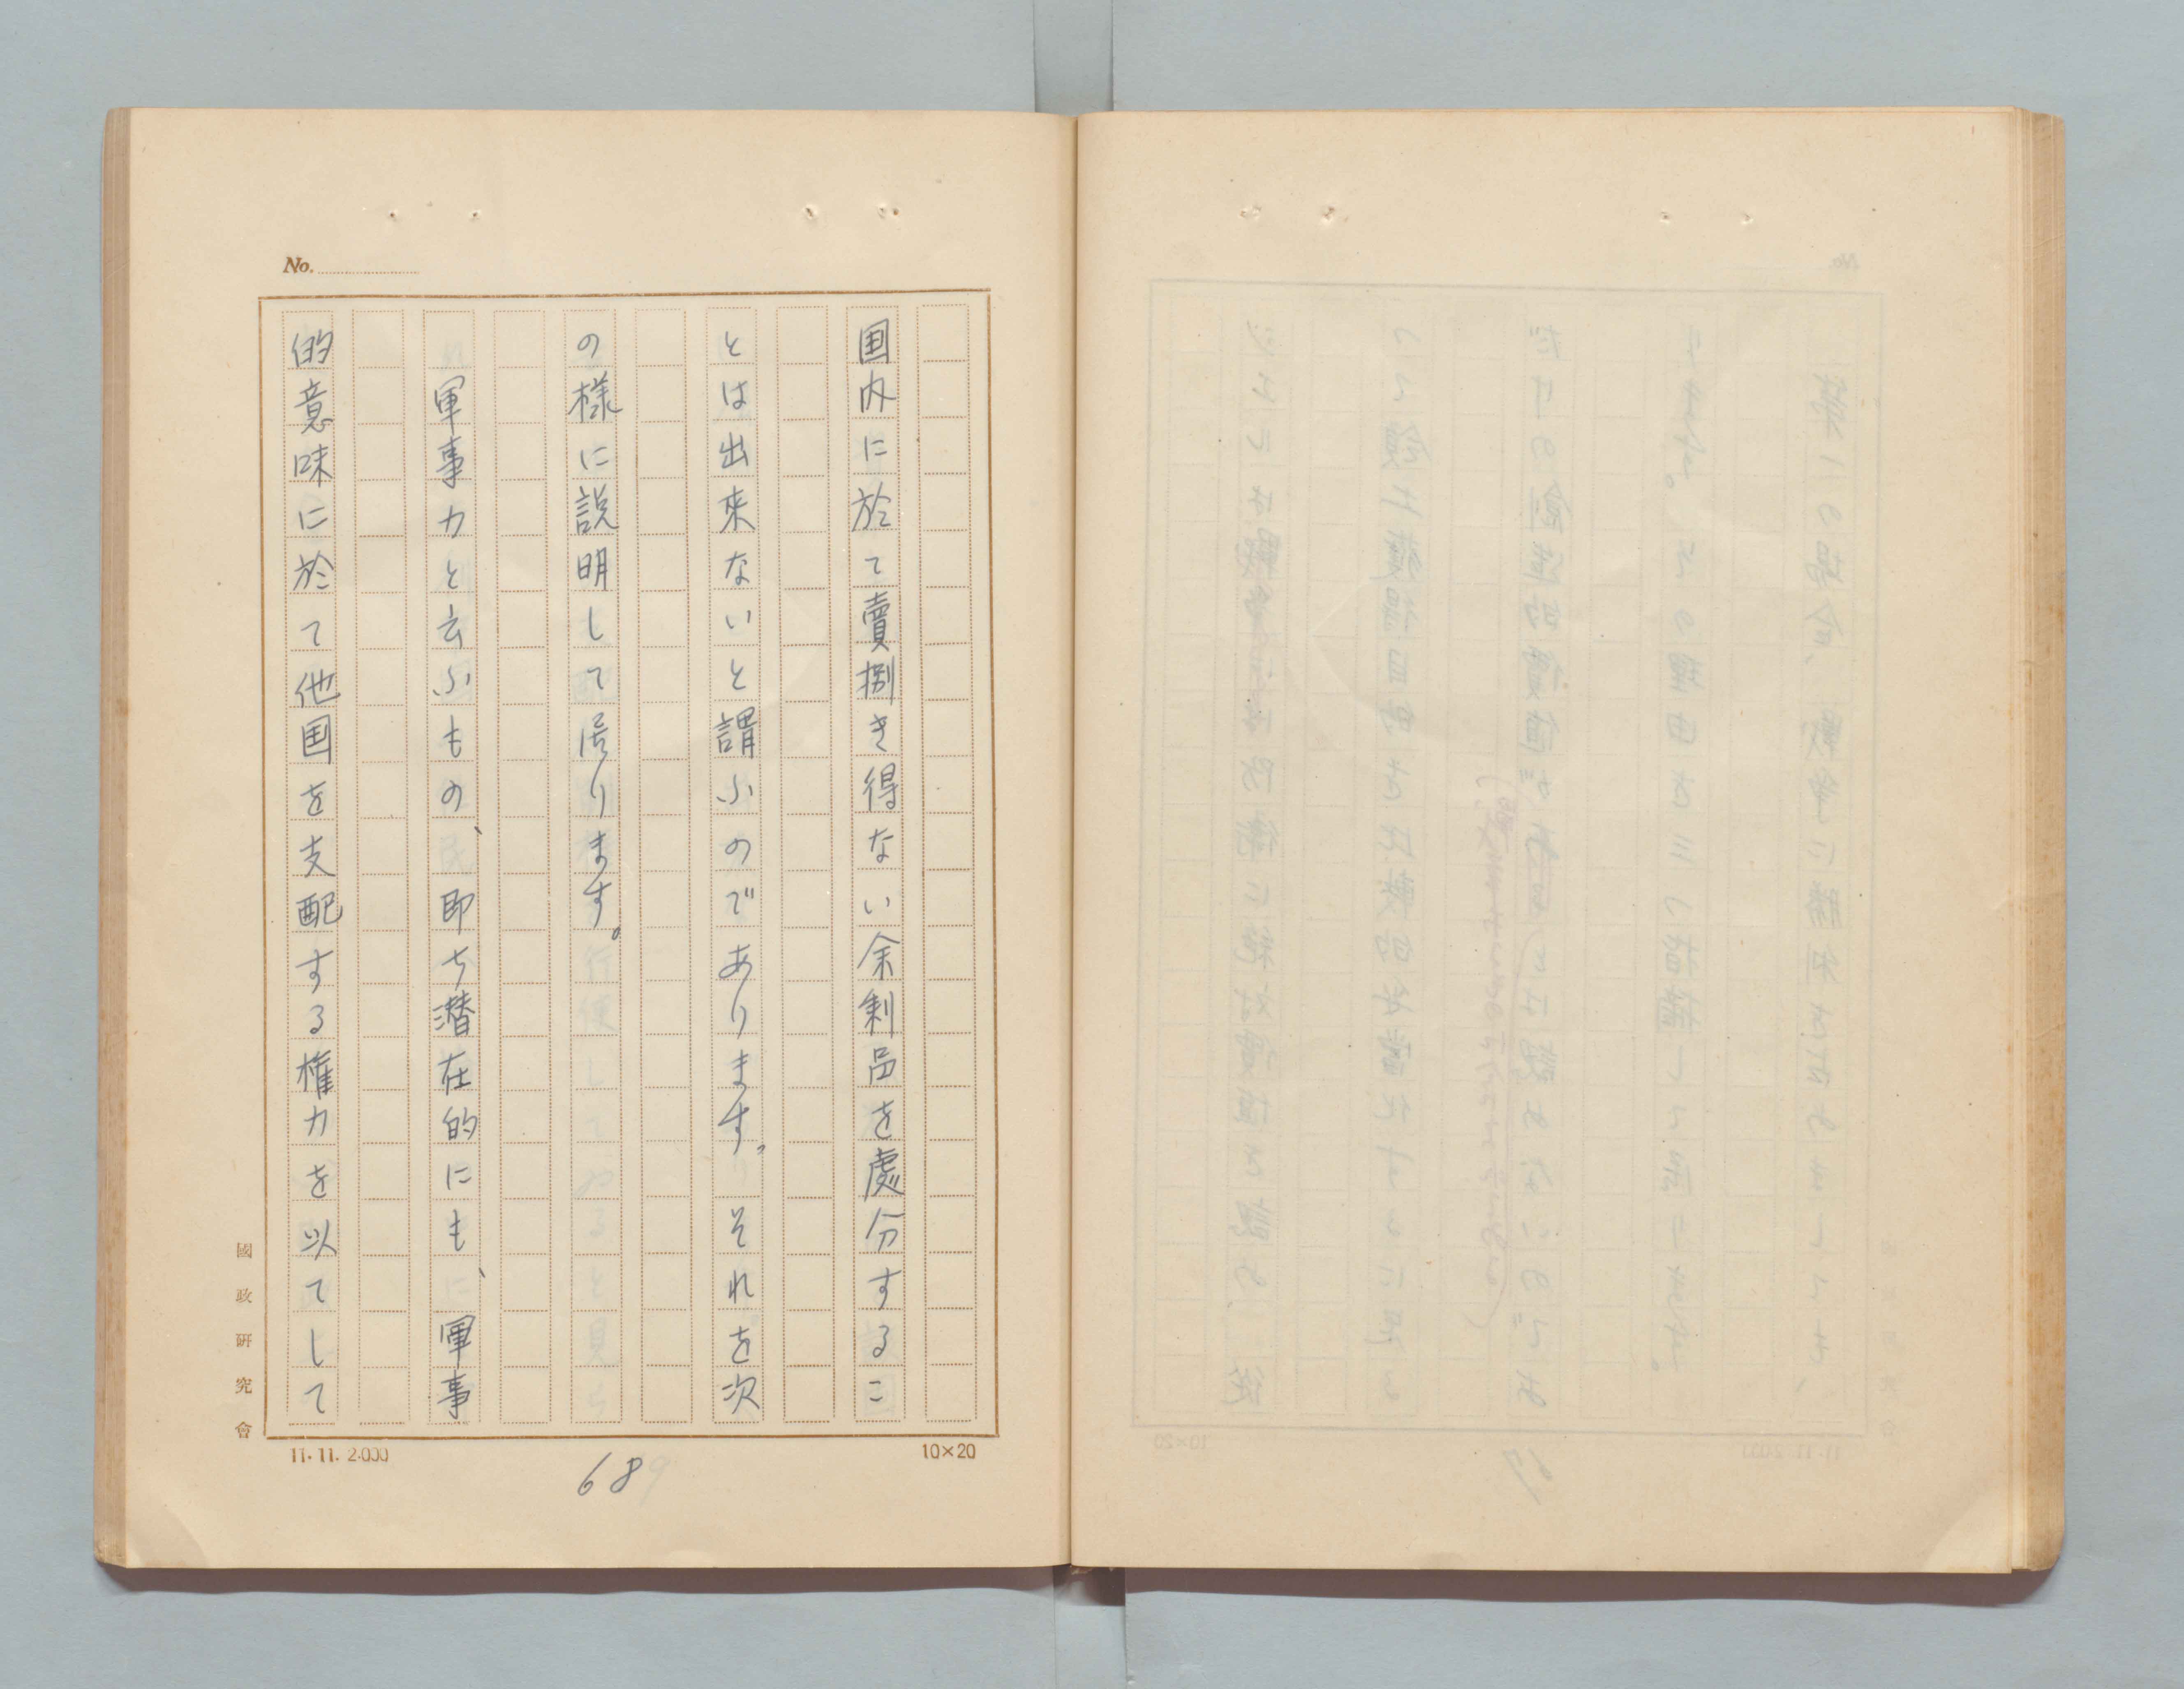 No.
国内に於て賣捌き得ない余剰品を處分するこ
とは出来ないと謂ふのであります。それを次
の様に説明して居ります。
軍事力と云ふもの、即ち潜在的にも、軍事
的意味に於て他国を支配する権力を以てして
國政研究會
11.11.2.000
10×20
68